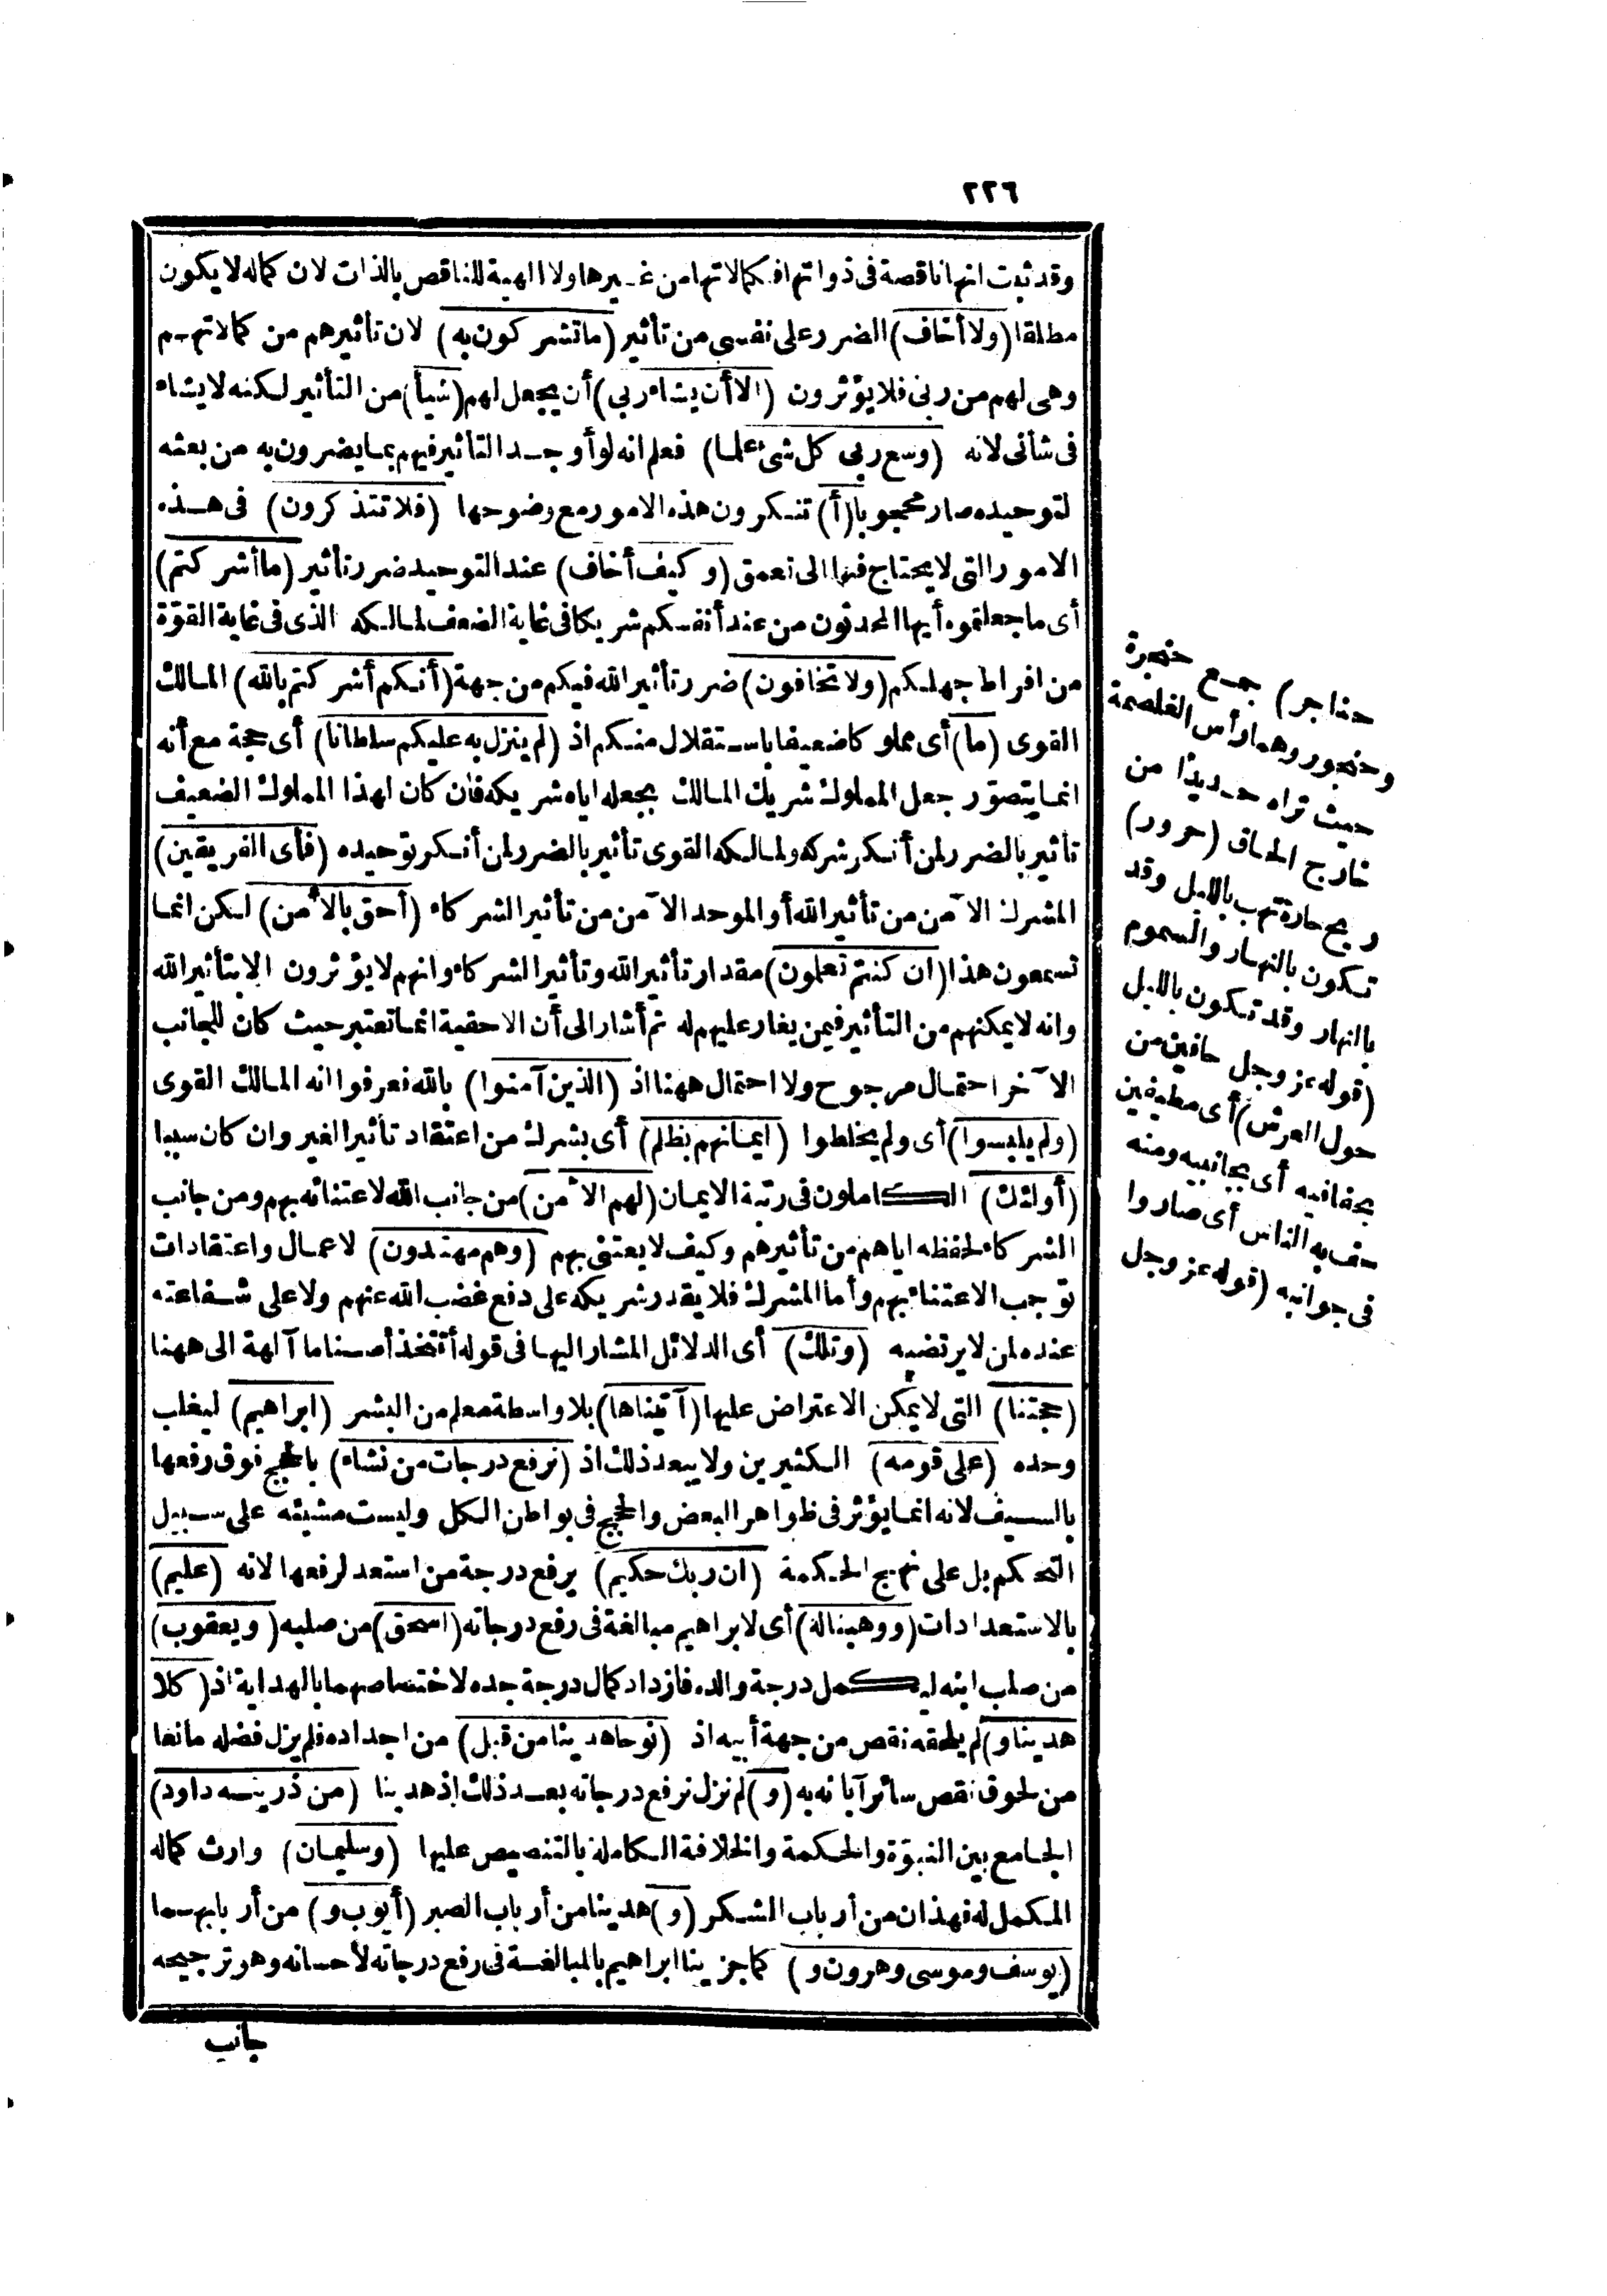 ٢٢٦
وقد ثبت انها ناقصة فى ذواتها فكمالاتها من غيرها ولا الهية للناقص بالذات لان كماله لا يكون
مطلقا (ولا أخاف) الضرر على نفسى من تأثير (ما تشركون به) لان تأثيرهم من كمالاتهم
وهى لهم من ربى فلا يؤثرون (الا أن يشاء ربى) أن يجعل لهم (شيأ) من التأثير لكنه لا يشاء
فى شأنى لانه (وسع ربى كل شئ علما) فعلم انه لو أوجد التأثير فيهم بما يضرون به من بعثه
لتوحيده صار محجوبا (أ) تنكرون هذه الامور مع وضوحها (فلا تتذكرون) فى هذه
الامور التى لا يحتاج فيها الى تعمق (وكيف أخاف) عند التوحيد ضرر تأثير (ما أشركتم)
أى ما جعلتموه أيها المحدثون من عند أنفسكم شريكا فى غاية الضعف لمالكه الذى فى غاية القوّة
من افراط جهلكم (ولا تخافون) ضرر تأثير الله فيكم من جهة (أنكم أشركتم بالله) المالك
القوى (ما) أى مملوكا ضعيفا باستقلال منكم اذ (لم ينزل به عليكم سلطانا) أى حجة مع أنه
انما يتصوّر جعل المملوك شريك المالك بجعله اياه شريكه فان كان لهذا المملوك الضعيف
تأثير بالضرر لمن أنكر شركه ولمالكه القوى تأثير بالضرر لمن أنكر توحيده (فأى الفريقين)
المشرك الآمن من تأثير الله أو الموحد الآمن من تأثير الشركاء (أحق بالأمن) لكن انما
تسمعون هذا (ان كنتم تعلمون) مقدار تأثير الله وتأثير الشركاء وانهم لا يؤثرون الا بتأثير الله
وانه لا يمكنهم من التأثير فيمن يغار عليهم له ثم أشار الى أن الاحقية انما تعتبر حيث كان للجانب
الآخر احتمال مرجوح ولا احتمال ههنا اذ (الذين آمنوا) بالله فعرفوا انه المالك القوى
(ولم يلبسوا) أى ولم يخلطوا (ايمانهم بظلم) أى بشرك من اعتقاد تأثير الغير وان كان سببا
(أولئك) الكاملون فى رتبة الايمان (لهم الأمن) من جانب الله لاعتنائه بهم ومن جانب
الشركاء لحفظه اياهم من تأثيرهم وكيف لا يعتنى بهم (وهم مهتدون) لاعمال واعتقادات
توجب الاعتناء بهم وأما المشرك فلا يقدر شريكه على دفع غضب الله عنهم ولا على شفاعته
عنده لمن لا يرتضيه (وتلك) أى الدلائل المشار اليها فى قوله أتتخذ أصناما آلهة الى ههنا
(حجتنا) التى لا يمكن الاعتراض عليها (آتيناها) بلا واسطة معلم من البشر (ابراهيم) ليغلب
وحده (على قومه) الكثيرين ولا يبعد ذلك اذ (نرفع درجات من نشاء) بالحجج فوق رفعها
بالسيف لانه انما يؤثر فى ظواهر البعض والحجج فى بواطن الكل وليست مشيئته على سبيل
التحكم بل على نهج الحكمة (ان ربك حكيم) يرفع درجة من استعد لرفعها لانه (عليم)
بالاستعدادات (ووهبنا له) أى لابراهيم مبالغة فى رفع درجاته (اسحق) من صلبه (ويعقوب)
من صلب ابنه ليكمل درجة والده فازداد كمال درجة جده لاختصاصهما بالهداية اذ (كلا
هدينا و) لم يلحقه نقص من جهة أبيه اذ (نوحا هدينا من قبل) من اجداده فلم يزل فضله مانعا
من لحوق نقص سائر آبائه به (و) لم نزل نرفع درجاته بعد ذلك اذ هدينا (من ذريته داود)
الجامع بين النبوّة والحكمة والخلافة الكاملة بالتنصيص عليها (وسليمان) وارث كماله
المكمل له فهذان من أرباب الشكر (و) هدينا من أرباب الصبر (أيوب و) من أربابهما
(يوسف وموسى وهرون و) كما جزينا ابراهيم بالمبالغة فى رفع درجاته لاحسانه وهو ترجيحه
جانب
حناجر) جمع حنجرة
وحنجور وهما رأس الغلصمة
حيث تراه حديدًا من
خارج الحلق (حرور)
ريح حارة تهب بالليل وقد
تكون بالنهار والسموم
بالنهار وقد تكون بالليل
(قوله عز وجل حافين من
حول العرش) أى مطيفين
بحفافيه أى بجانبيه ومنه
حف به الناس أى صاروا
فى جوانبه (قوله عز وجل